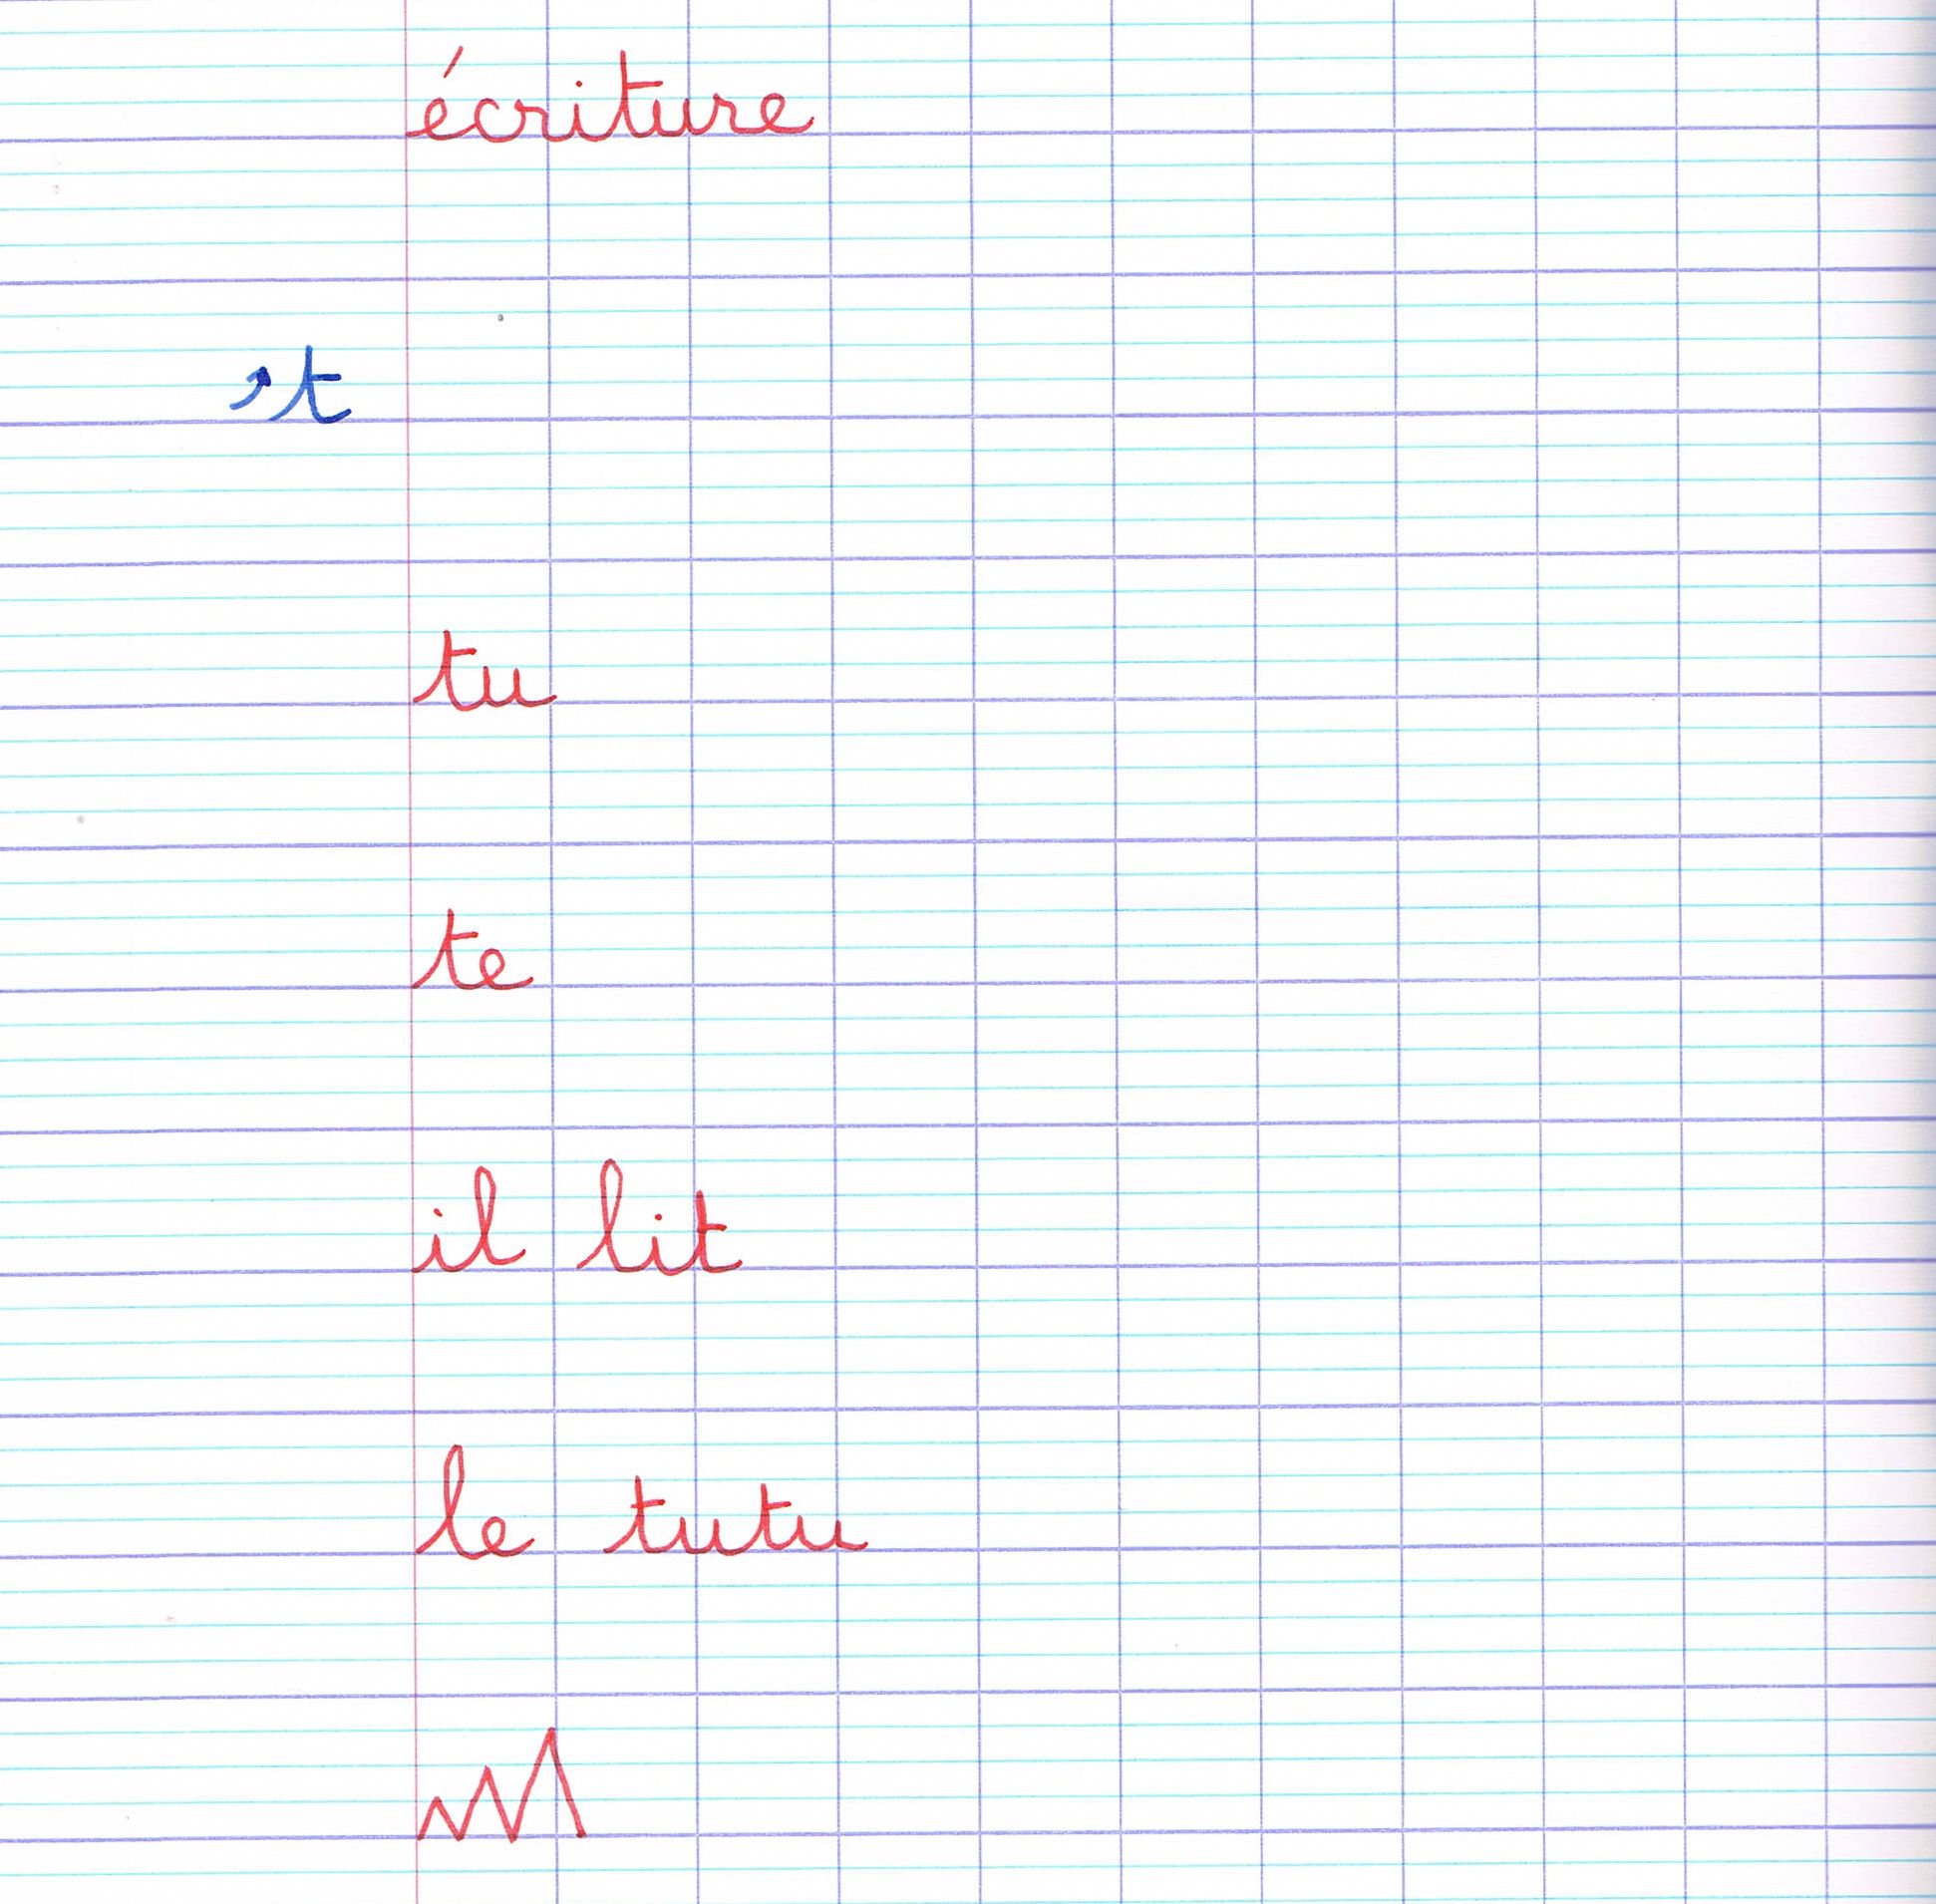 écriture
t
tu
te
il lit
le tutu